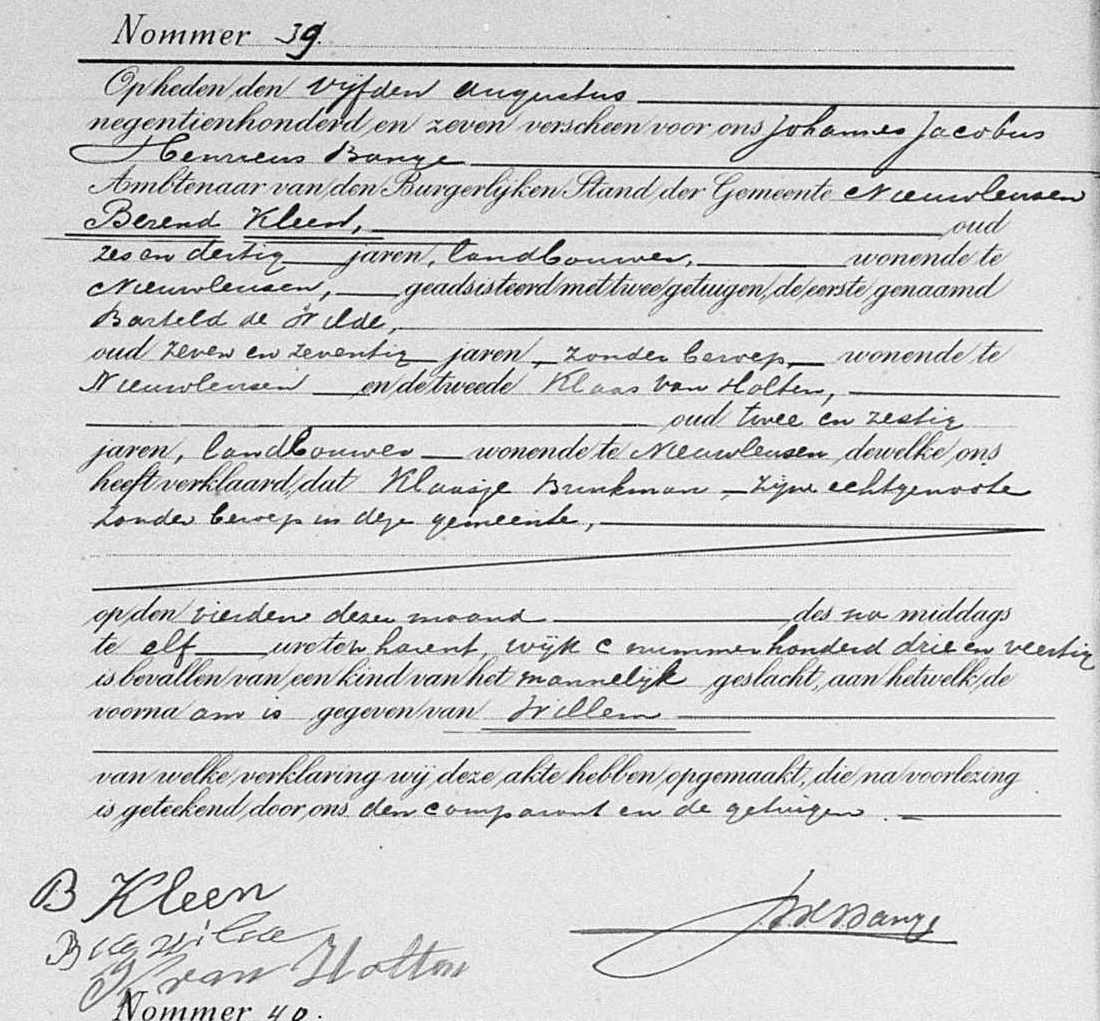 Nommer 39.
Op heden, den vijfden Augustus
negentienhonderd en zeven verscheen voor ons Johannes Jacobus
Henricus Bange
Ambtenaar van den Burgerlijken Stand der Gemeente Nieuwleusen
Berend Kleen, oud
zes en dertig jaren, landbouwer, wonende te
Nieuwleusen, geadsisteerd met twee getuigen, de eerste genaamd
Barteld de Wilde,
oud zeven en zeventig jaren, zonder beroep, wonende te
Nieuwleusen en de tweede Klaas van Holten,
oud twee en zestig
jaren, landbouwer wonende te Nieuwleusen, dewelke ons
heeft verklaard, dat Klaasje Brinkman zijne echtgenoote
zonder beroep in deze gemeente,
op den vierden dezer maand des na middags
te elf ure ten harent, wijk C nummer honderd drie en veertig
is bevallen van een kind van het mannelijk geslacht, aan hetwelk de
voorna am is gegeven van Willem
van welke verklaring wij deze akte hebben opgemaakt, die na voorlezing
is geteekend door ons den comparant en de getuigen.
B Kleen
JJHBange
B de Wilde
K van Holten
Nommer 40.